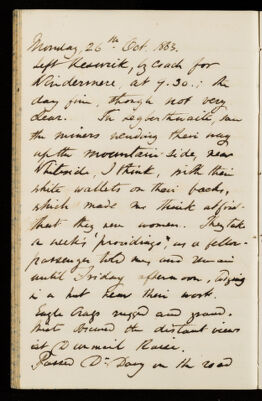 Monday, 26th Oct. 1863.
Left Keswick, by Coach for
Windermere, at 9.30.; the
day fine, though not very
clear. In Legberthwaite, saw
the miners wending their way
up the mountain side, near
Whiteside, I think, with their
white wallets on their backs,
which made me think at first
that they were women. They take
a week's 'providings', as a fellow-
passenger told me, and remain
until Friday afternoon, lodging
in a hut near their work.
Eagle Crags rugged and grand.
Mists obscured the distant views
at Dunmail Raise.
Passed Dr. Davy on the road